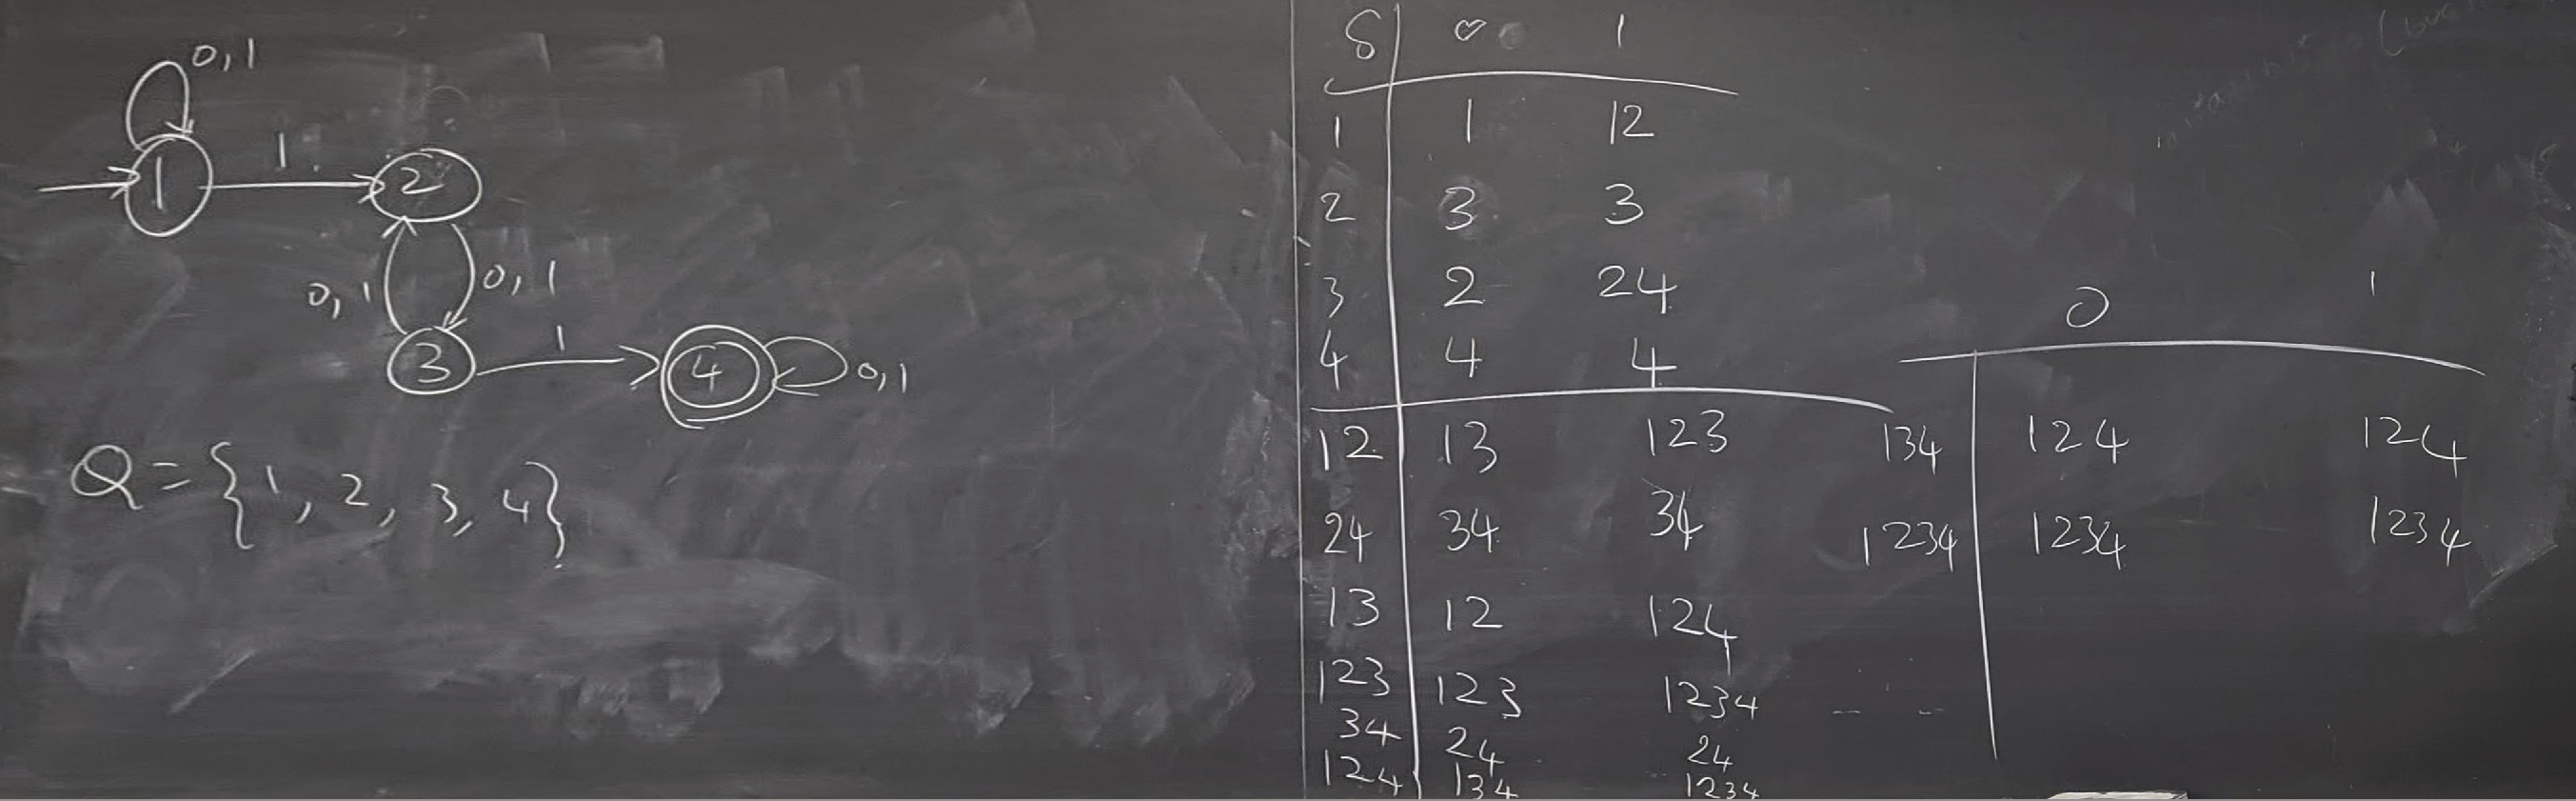 0,1
1
1 2
0,1 0,1
1
3 4 0,1
Q = {1, 2, 3, 4}
δ 0 1
1 1 12
2 3 3
3 2 24
4 4 4
12 13 123
24 34 34
13 12 124
123 123 1234
34 24 24
124 134 1234
0 1
134 124 124
1234 1234 1234